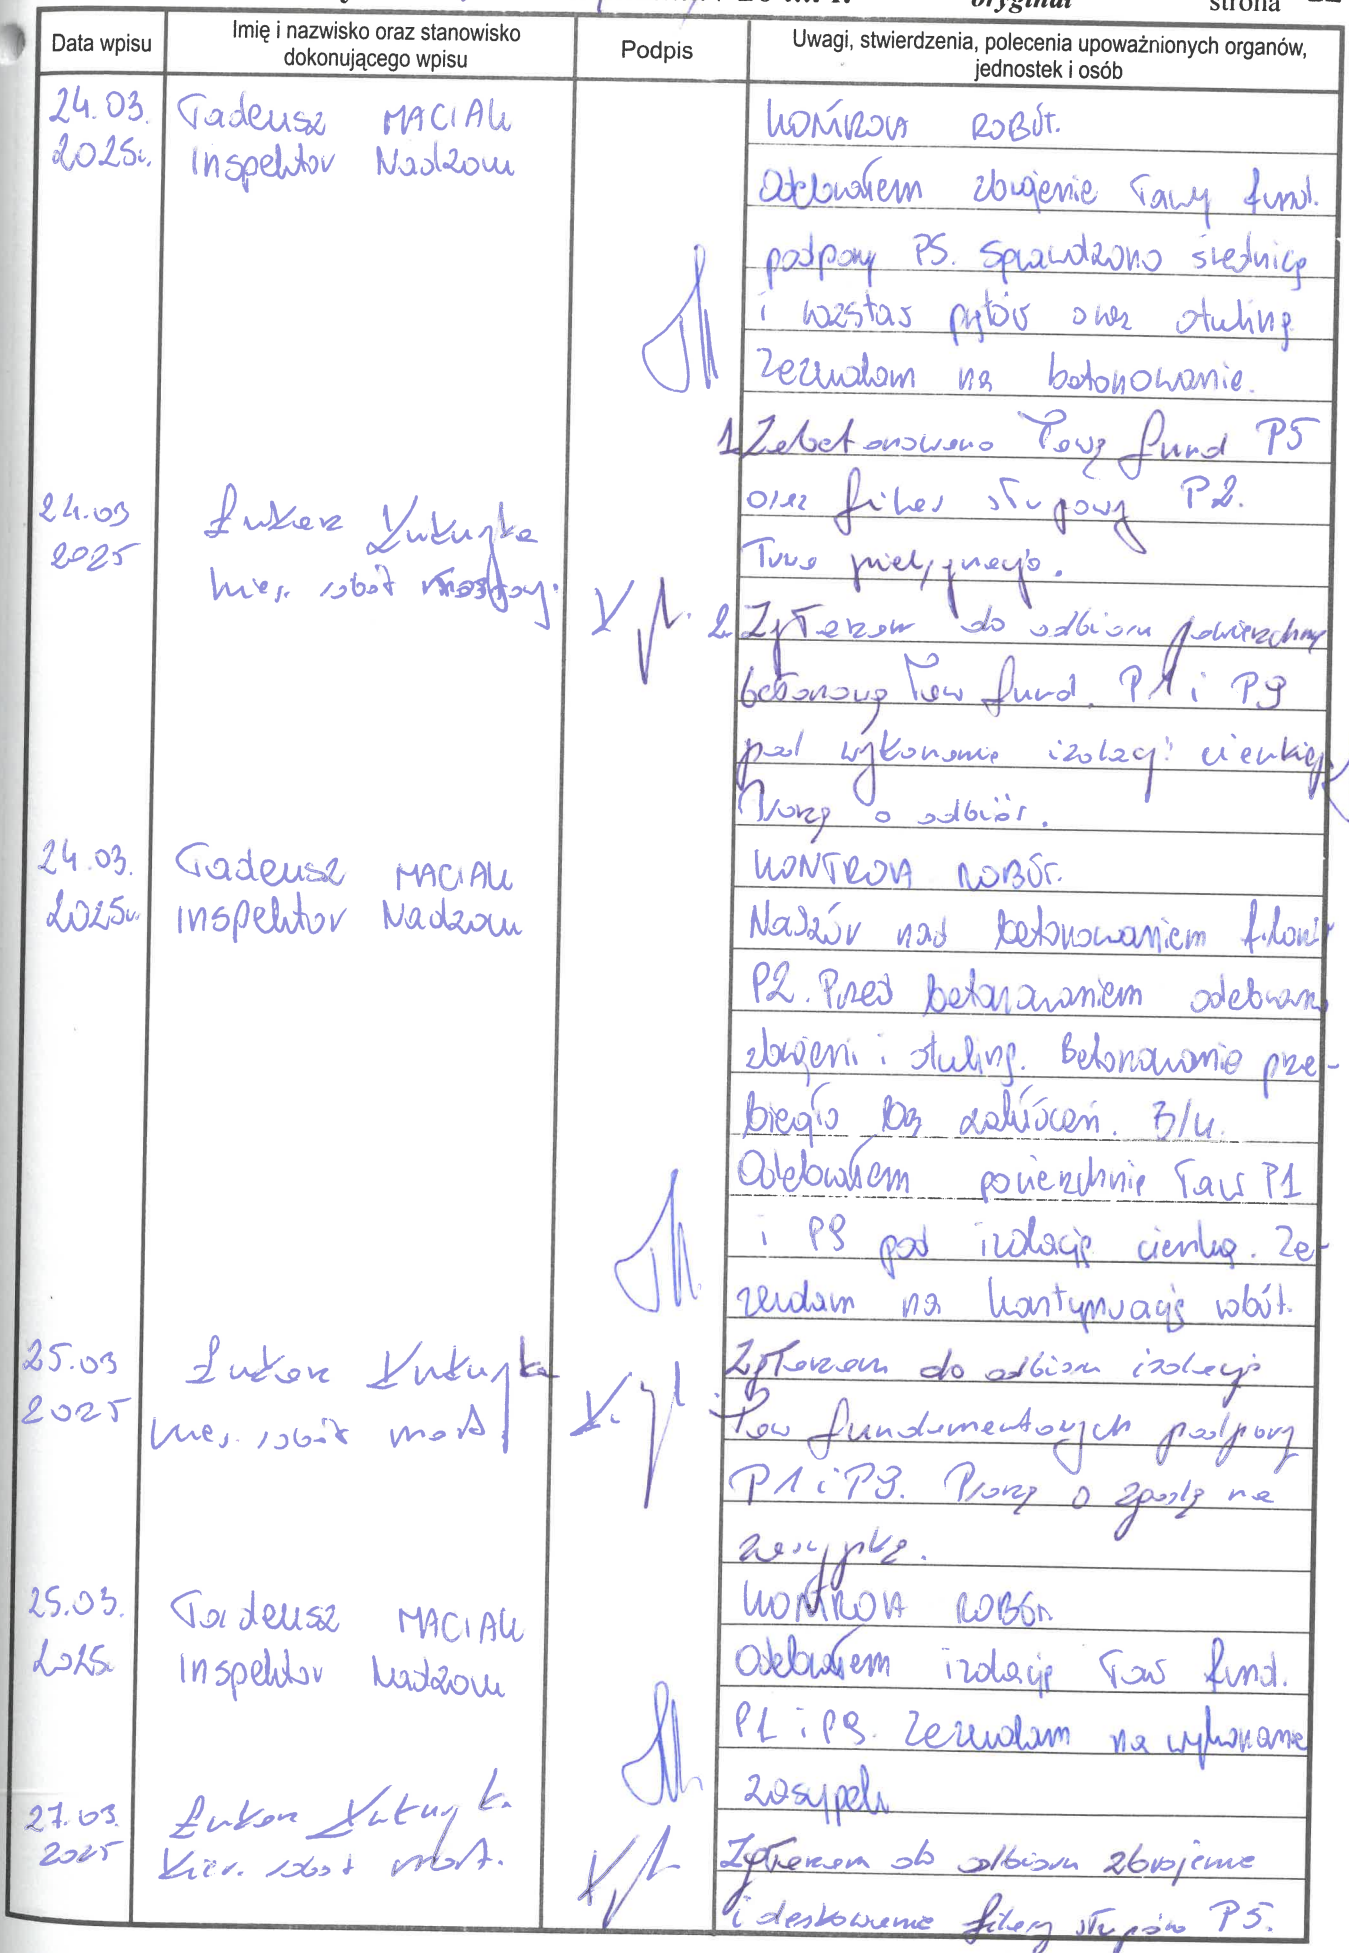 oryginał strona
Data wpisu
Imię i nazwisko oraz stanowisko
dokonującego wpisu
Podpis
Uwagi, stwierdzenia, polecenia upoważnionych organów,
jednostek i osób
24.03.
2025r.
Tadeusz MACIAK
Inspektor Nadzoru
KONTROLA ROBÓT.
Odebrałem zbrojenie ławy fund.
podpory P5. Sprawdzono średnicę
i rozstaw prętów oraz otulinę
Zezwalam na betonowanie.
24.03
2025
Łukasz
kier. robót mostowy.
1. Zabetonowano ławę fund P5
oraz filar słupowy P2.
Trwa pielęgnacja.
2. Zgłaszam do odbioru powierzchnię
betonową ław fund. P1 i P9
pod wykonanie izolacji cienkiej
Proszę o odbiór.
24.03.
2025r.
Tadeusz MACIAK
Inspektor Nadzoru
KONTROLA ROBÓT.
Nadzór nad betonowaniem filarów
P2. Przed betonowaniem odebrano
zbrojeni i otulinę. Betonowanie prze-
biegło bez zakłóceń. B/u.
Odebrałem powierzchnie ław P1
i P9 pod izolację cienką. Ze-
zwalam na kontynuację robót.
25.03
2025
Łukasz
kier. robót most.
Zgłaszam do odbioru izolację
ław fundamentowych podpory
P1 i P9. Proszę o zgodę na
zasypkę.
25.03.
2025r.
Tadeusz MACIAK
Inspektor Nadzoru
KONTROLA ROBÓT.
Odebrałem izolację ław fund.
P1 i P9. Zezwalam na wykonanie
zasypek
27.03.
2025
Łukasz
Kier. robót most.
Zgłaszam do odbioru zbrojenie
i deskowanie filary słupów P5.